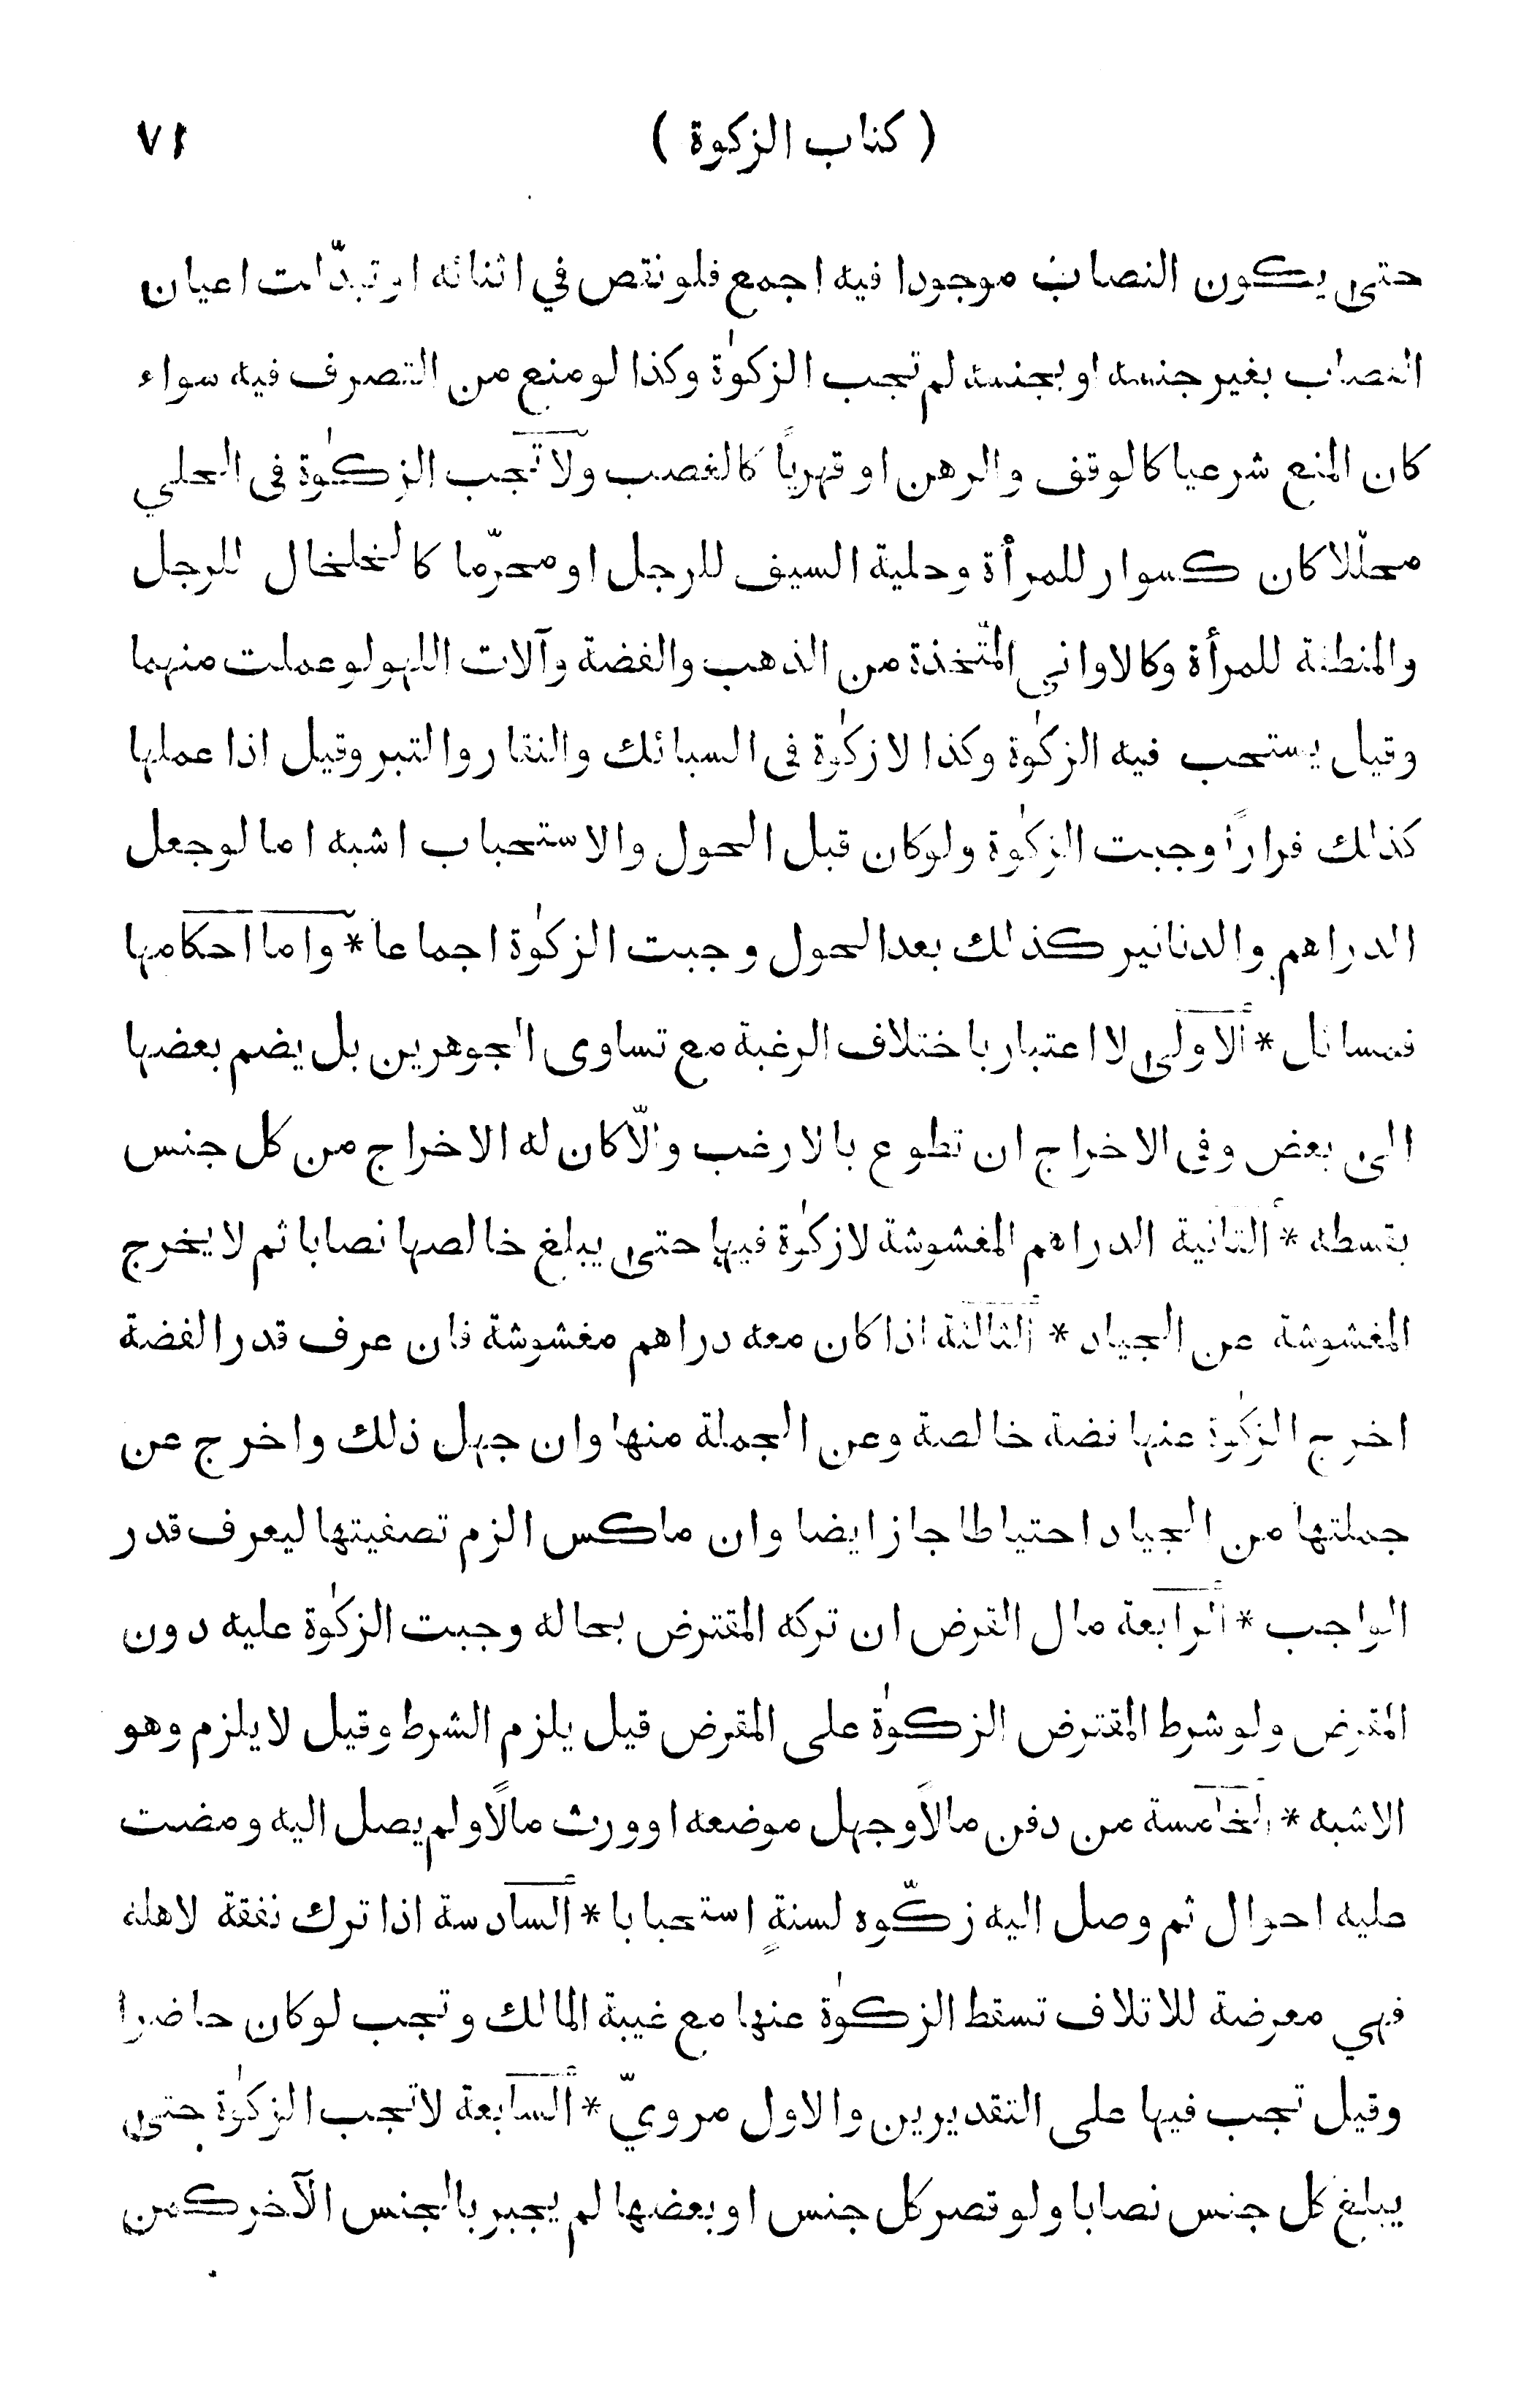 ( كتاب الزكوة ) ٧١
حتى يكون النصاب موجودا فيه اجمع فلو نقص في اثنائه او تبدّلت اعيان
النصاب بغير جنسه او بجنسه لم تجب الزكوٰة وكذا لو منع من التصرف فيه سواء
كان المنع شرعيا كالوقف والرهن او قهرياً كالغصب ولا تجب الزكوٰة فى الحلي
محلّلا كان كسوار للمرأة وحلية السيف للرجل او محرّما كالخلخال للرجل
والمنطقة للمرأة وكالاواني المتّخذة من الذهب والفضة وآلات اللهو لو عملت منهما
وقيل يستحب فيه الزكوٰة وكذا لا زكوٰة فى السبائك والنقار والتبر وقيل اذا عملها
كذلك فراراً وجبت الزكوٰة ولو كان قبل الحول والاستحباب اشبه اما لو جعل
الدراهم والدنانير كذلك بعد الحول وجبت الزكوٰة اجماعا * واما احكامها
فمسائل * الاولى لا اعتبار باختلاف الرغبة مع تساوى الجوهرين بل يضم بعضها
الى بعض وفى الاخراج ان تطوع بالارغب والّا كان له الاخراج من كل جنس
بقسطه * الثانية الدراهم المغشوشة لا زكوٰة فيها حتى يبلغ خالصها نصابا ثم لا يخرج
المغشوشة عن الجياد * الثالثة اذا كان معه دراهم مغشوشة فان عرف قدر الفضة
اخرج الزكوٰة عنها فضة خالصة وعن الجملة منها وان جهل ذلك واخرج عن
جملتها من الجياد احتياطا جاز ايضا وان ماكس الزم تصفيتها ليعرف قدر
الواجب * الرابعة مال القرض ان تركه المقترض بحاله وجبت الزكوٰة عليه دون
المقرض ولو شرط المقترض الزكوٰة على المقرض قيل يلزم الشرط وقيل لا يلزم وهو
الاشبه * الخامسة من دفن مالاً وجهل موضعه او ورث مالاً ولم يصل اليه ومضت
عليه احوال ثم وصل اليه زكّوه لسنةٍ استحبابا * السادسة اذا ترك نفقة لاهله
فهي معرضة للاتلاف تسقط الزكوٰة عنها مع غيبة المالك وتجب لو كان حاضرا
وقيل تجب فيها على التقديرين والاول مرويّ * السابعة لا تجب الزكوٰة حتى
يبلغ كل جنس نصابا ولو قصر كل جنس او بعضها لم يجبر بالجنس الآخر كمن